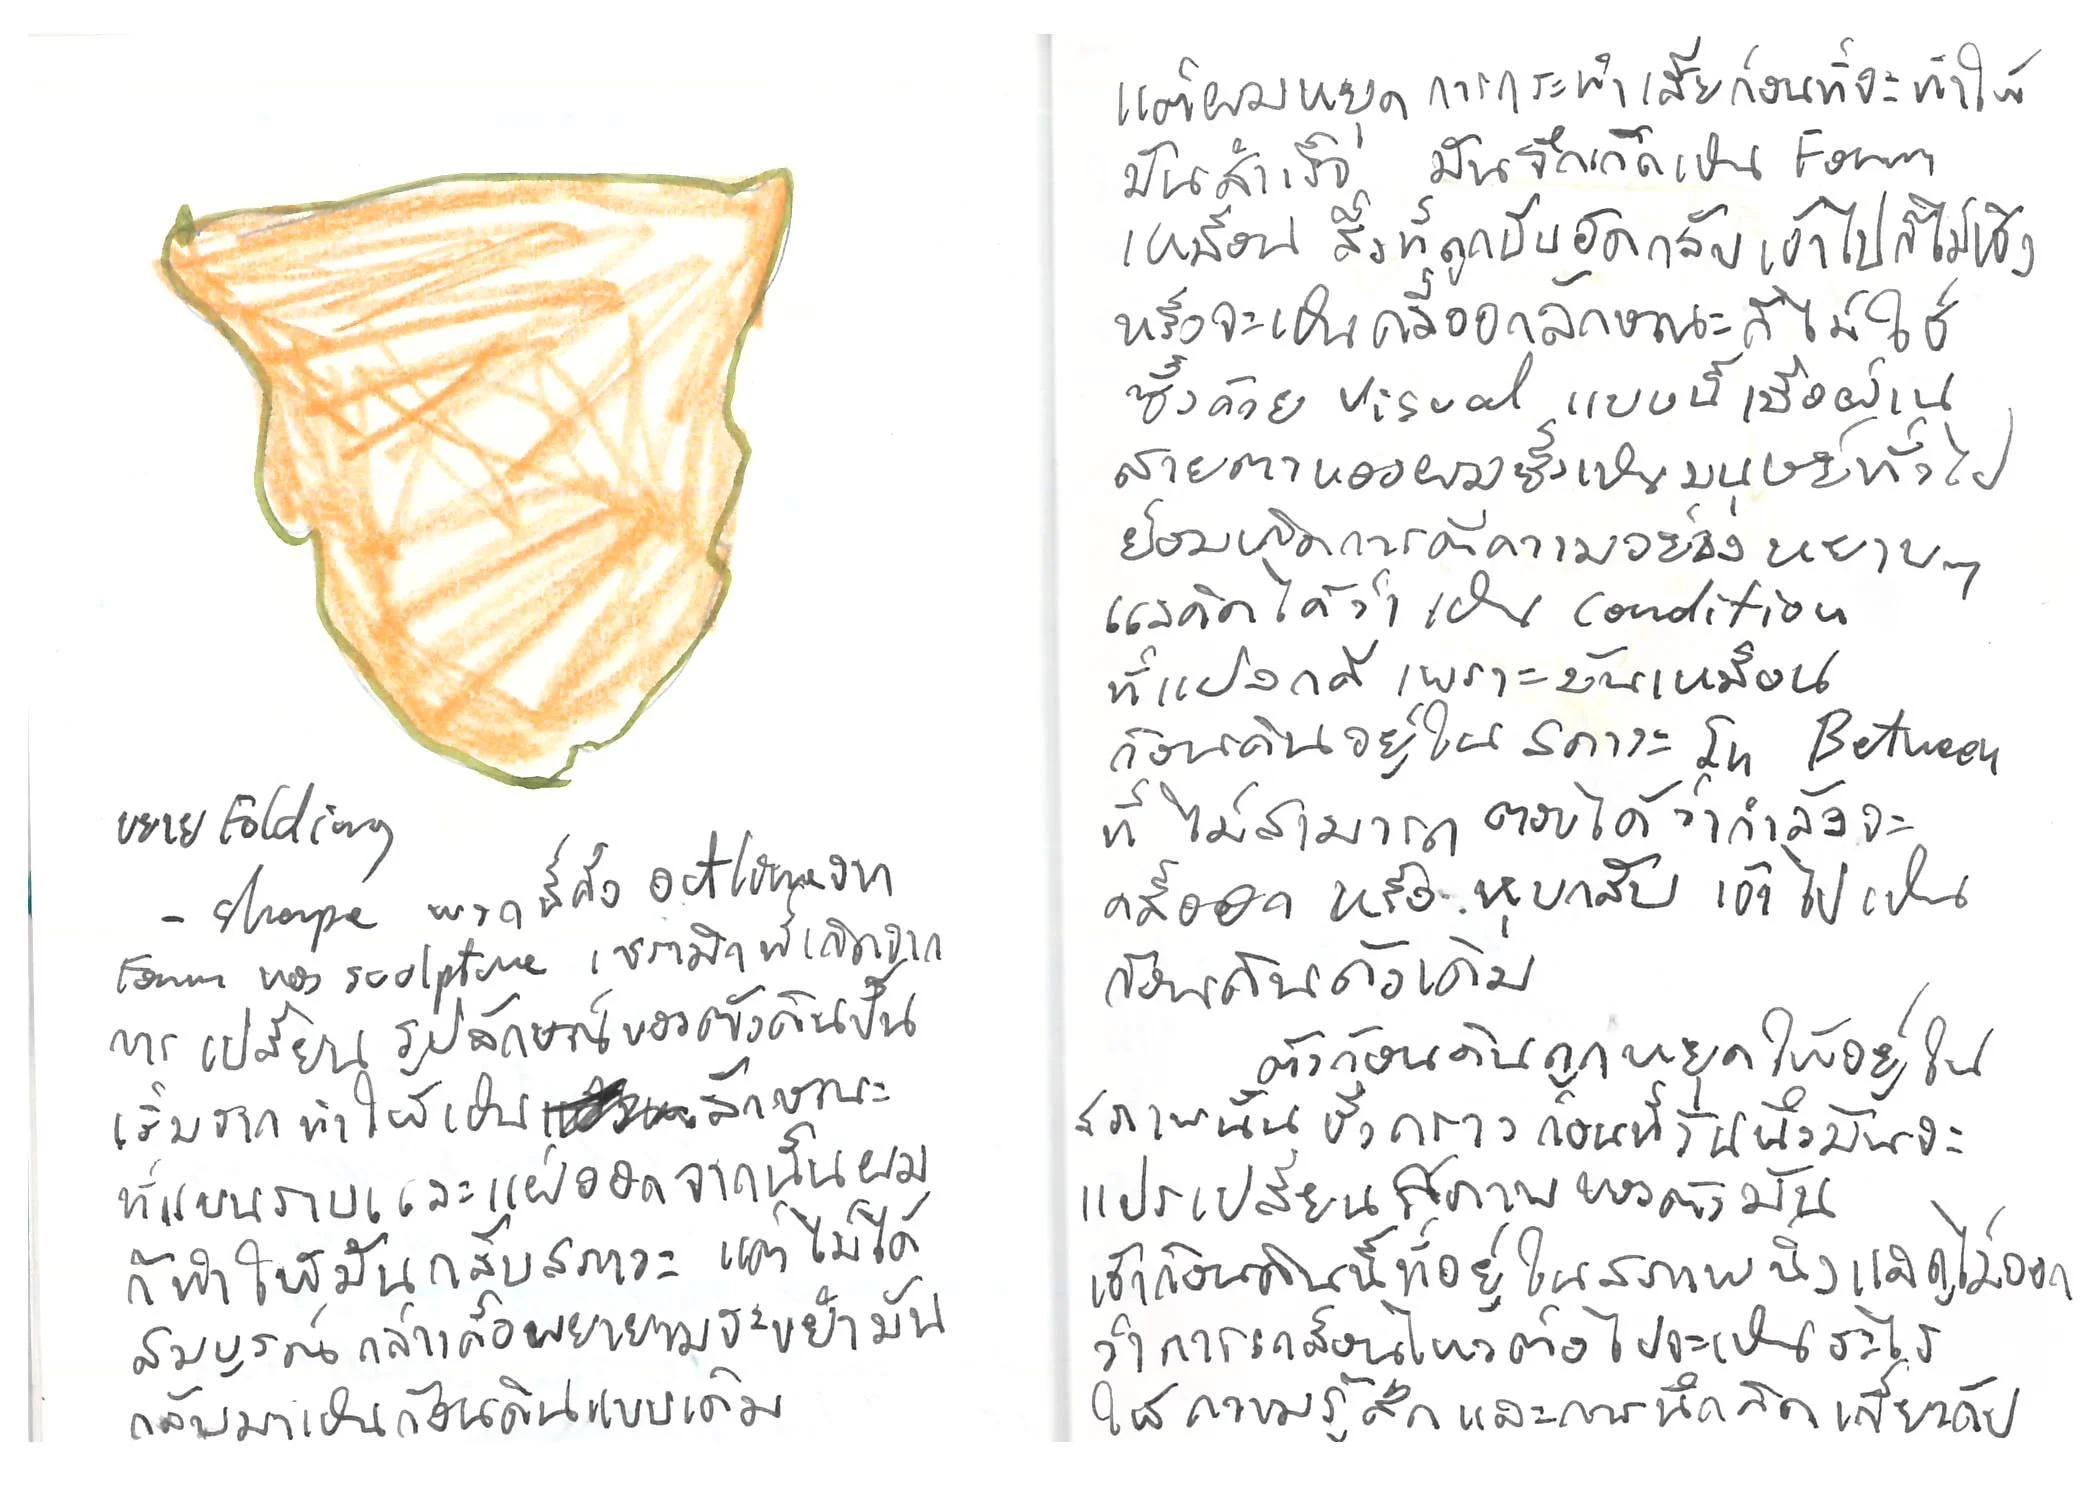 ขยาย Folding
- shape พวกนี้คือ outline จาก
Form ของ sculpture เซรามิกที่เกิดจาก
การเปลี่ยนรูปลักษณ์ของตัวดินปั้น
เริ่มจากทำให้เป็น ลักษณะ
ที่แบนราบและแผ่ออกจากนั้นผม
ก็ทำให้มันกลับสภาวะ แต่ไม่ได้
สมบูรณ์ กล่าวคือพยายามจะขยำมัน
กลับมาเป็นก้อนดินแบบเดิม
แต่ผมหยุด การกระทำเสียก่อนที่จะทำให้
มันสำเร็จ มันจึงเกิดเป็น Form
เหมือน สิ่งที่ถูกบีบอัดกลับเข้าไปก็ไม่เชิง
หรือจะเป็นคลี่ออกลักษณะก็ไม่ใช่
ซึ่งด้วย visual แบบนี้ เมื่อผ่าน
สายตาของผมซึ่งเป็นมนุษย์ทั่วไป
ย่อมเกิดการตีความอย่าง หยาบๆ
และคิดได้ว่า เป็น condition
ที่แปลกดี เพราะมันเหมือน
ก้อนดินอยู่ใน สภาวะ In Between
ที่ ไม่สามารถ ตอบได้ว่ากำลังจะ
คลี่ออก หรือ หุบกลับ เข้าไปเป็น
ก้อนดินดังเดิม
ตัวก้อนดินถูกหยุดให้อยู่ใน
สภาพนั้น ชั่วคราว ก่อนที่วันนึงมันจะ
แปรเปลี่ยนสภาพของตัวมัน
เจ้าก้อนดินนี้ที่อยู่ในสภาพนิ่งแลดูไม่ออก
ว่าการเคลื่อนไหวต่อไปจะเป็นอะไร
ให้ความรู้สึกและการนึกคิดเกี่ยวกับ